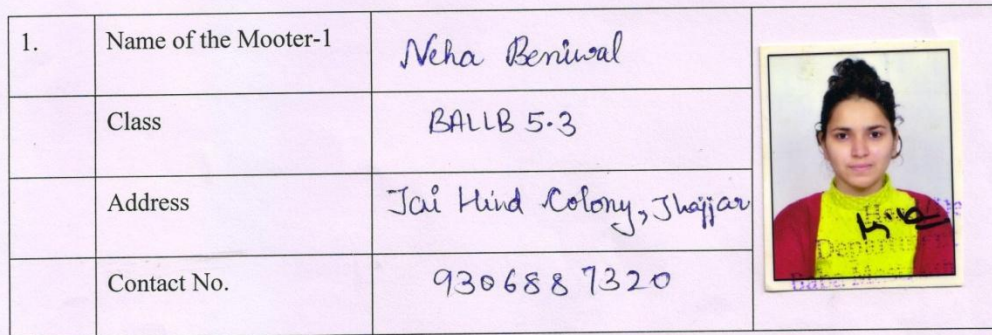 1. Name of the Mooter-1 Neha Beniwal
Class BALLB 5.3
Address Jai Hind Colony, Jhajjar
Contact No. 9306887320
Department